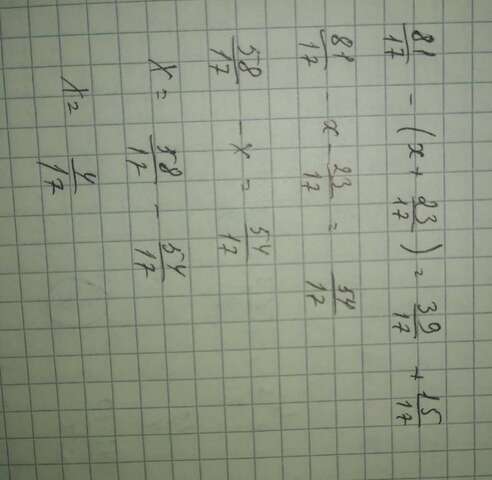 81/17 - (x + 23/17) = 39/17 + 15/17
81/17 - x - 23/17 = 54/17
58/17 - x = 54/17
x = 58/17 - 54/17
x = 4/17